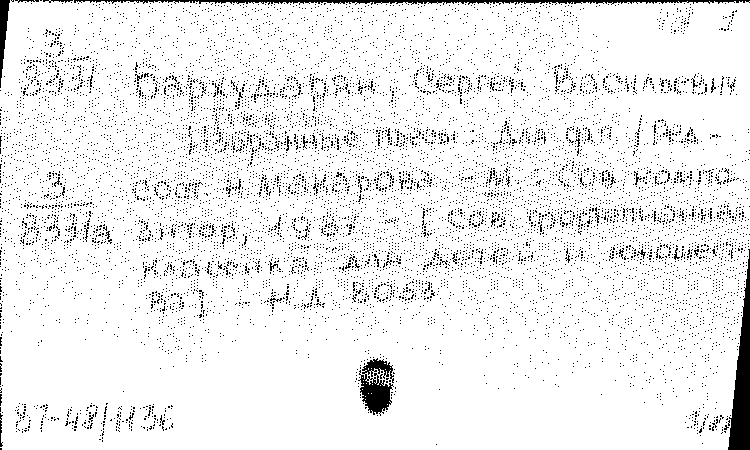 3
8331
Бархударян, Сергей Васильевич
Избранные пьесы : Для фп / Ред -
3
8331а
сост. Н. Макарова - М : Сов компо
зитор, 1987 - [Сов фортепианная
классика для детей и юношест-
ва] - Н.Д
87-48/1136